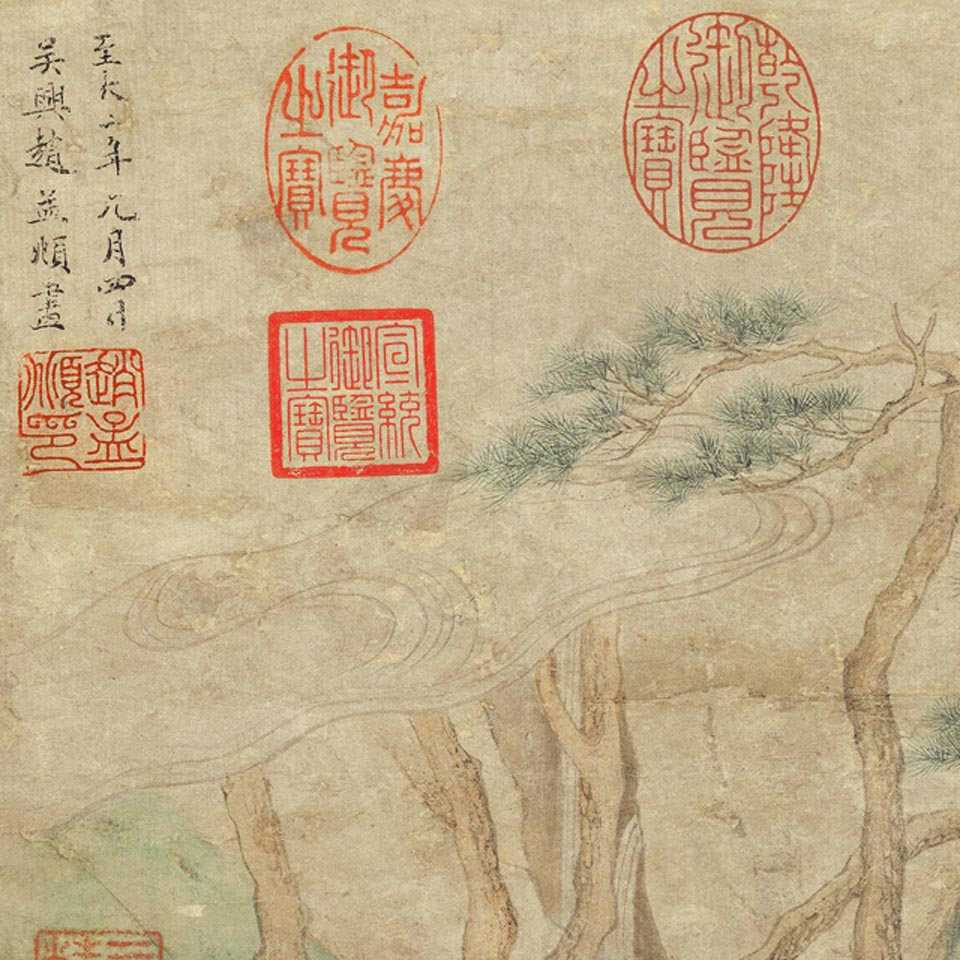 乾隆
御覽
之寶
嘉慶
御覽
之寶
宣統
御覽
之寶
至大二年九月四日
吳興趙孟頫畫
趙孟
頫印